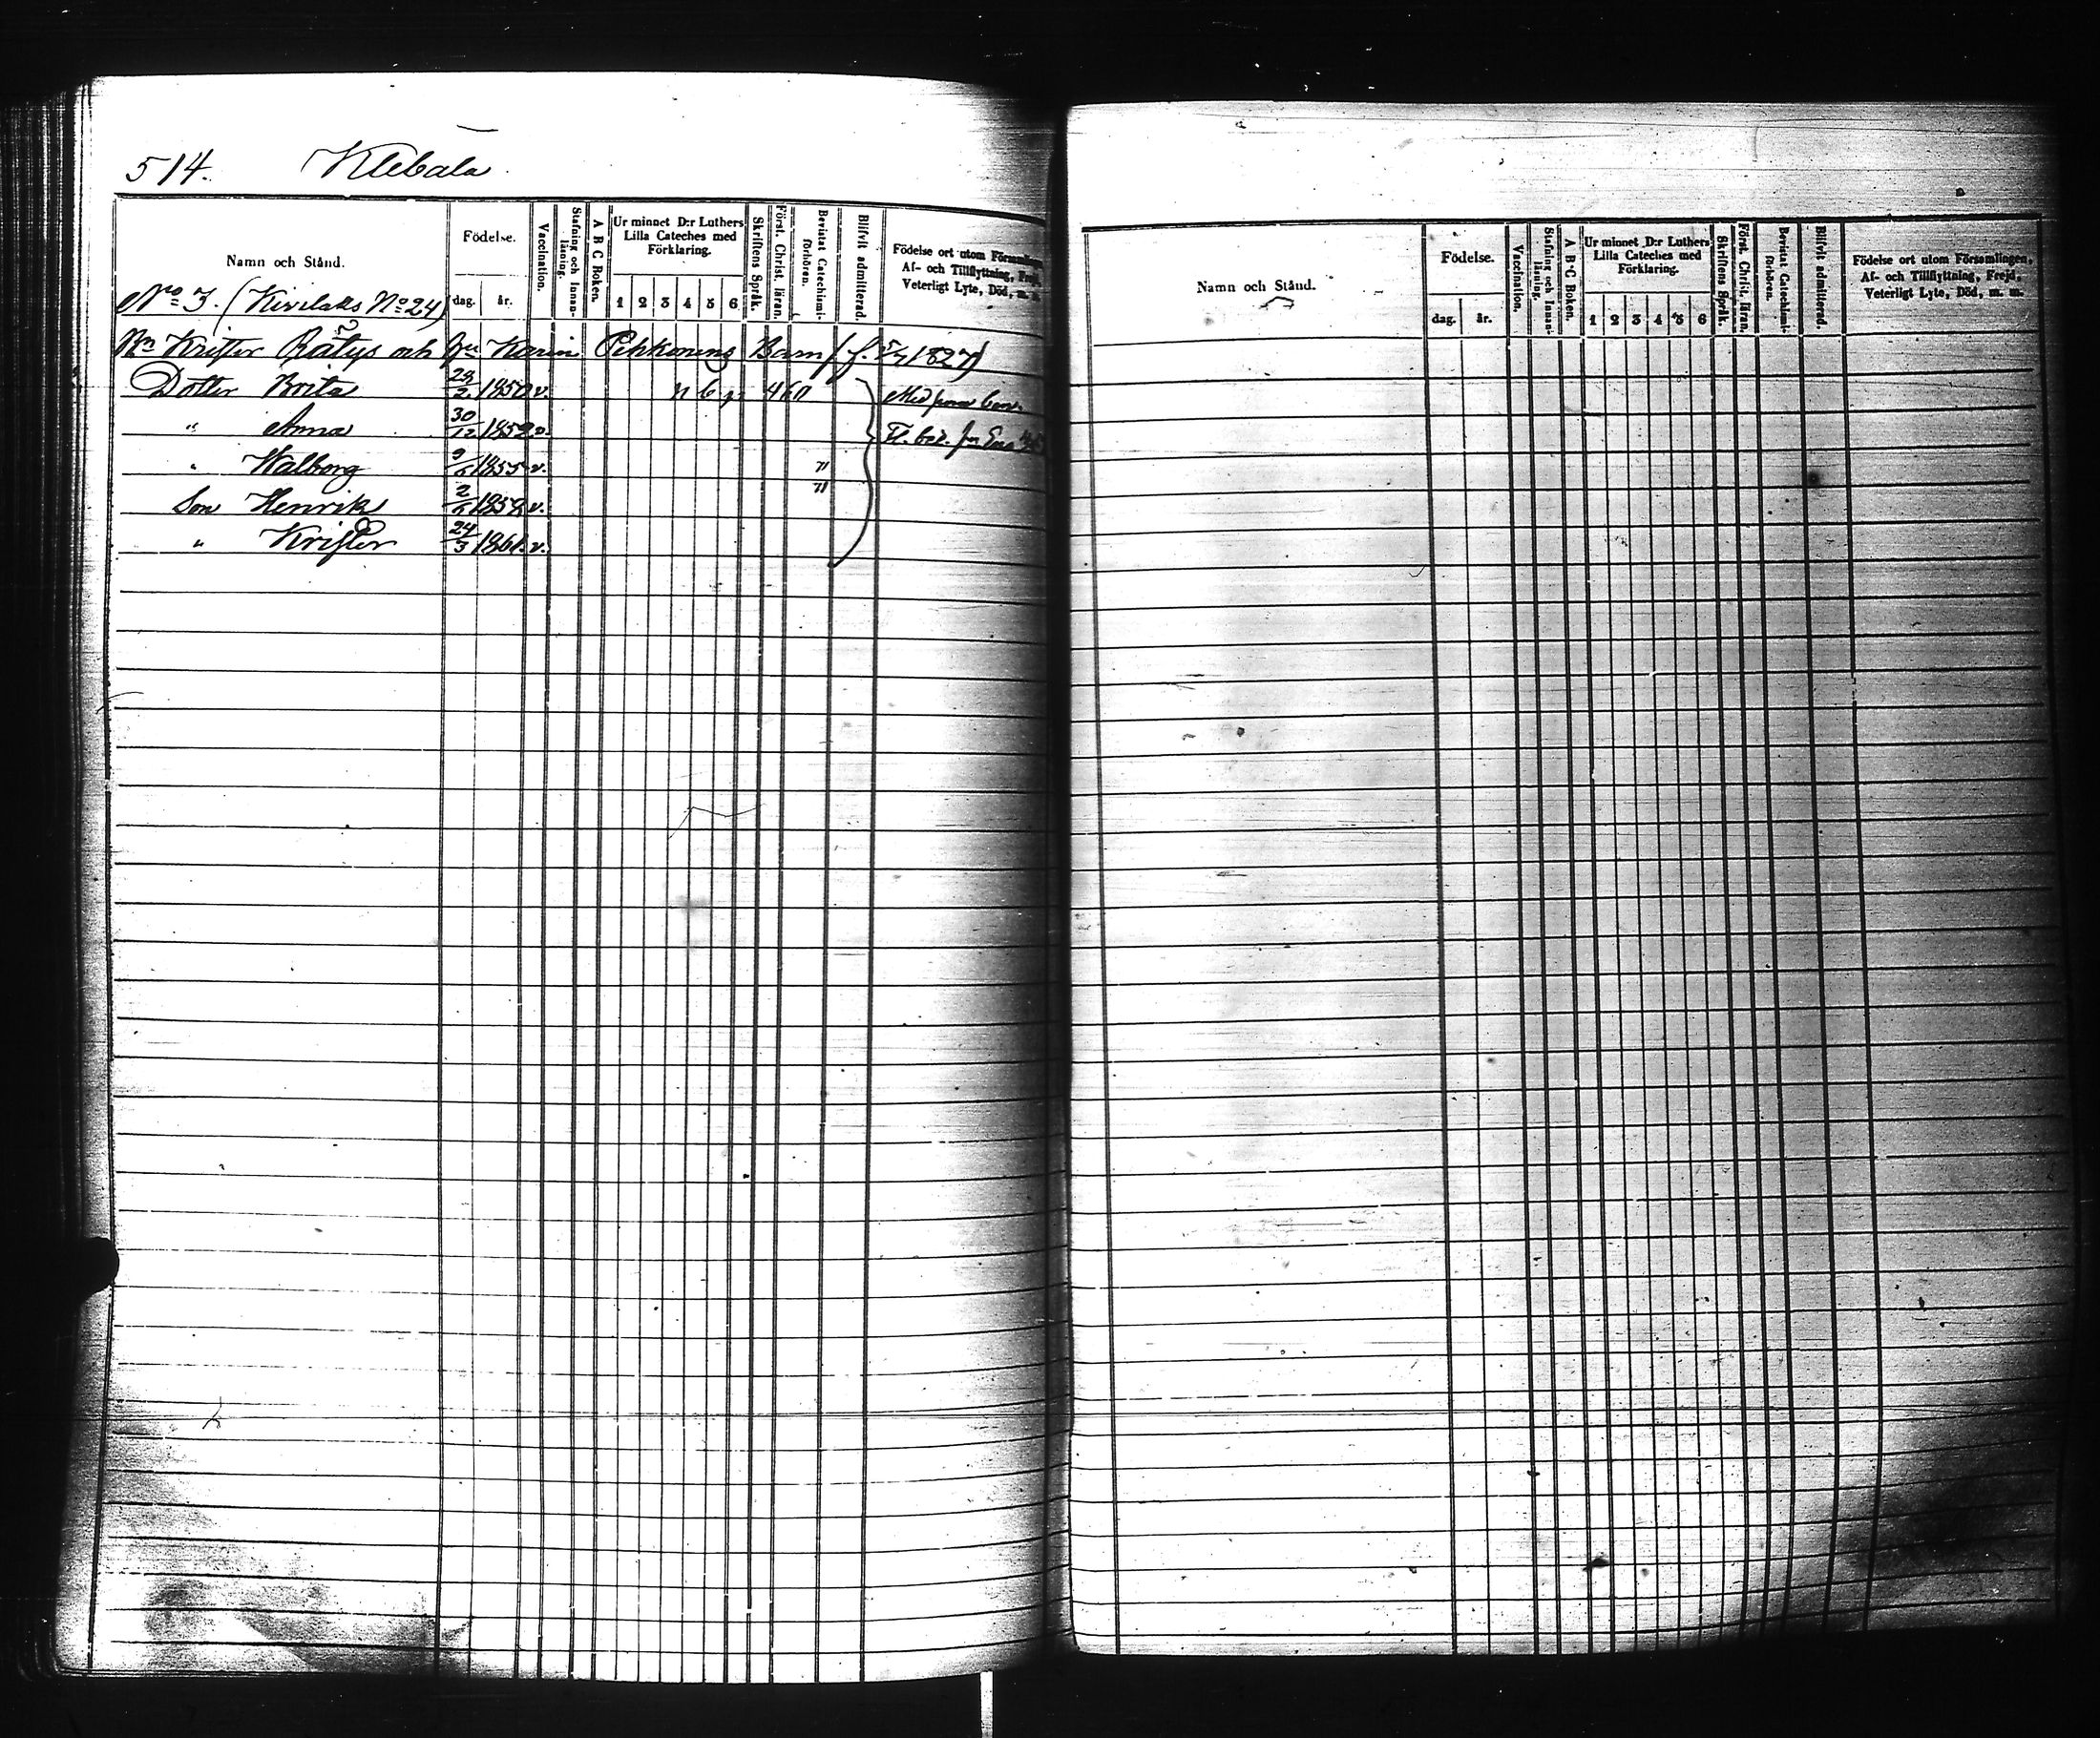 514. Klebala
Namn och Stånd.
Födelse.
dag. år.
Vaccination.
Stafning och Innanläsning.
A B C Boken.
Ur minnet D:r Luthers Lilla Cateches med Förklaring.
1 2 3 4 5 6
Skriftens Språk.
Först. Christ. läran.
Bevistat Catechismiförhören.
Blifvit admitterad.
Födelse ort utom Församlingen
Af- och Tillflyttning, Frejd,
Veterligt Lyte, Död, m. m.
No 3. (Kivilaks No 24)
Krister Rätys och Karin Pekkonens Barn (f. 1827)
Dotter Brita 28/2 1850 v.
" Anna 30/12 1852 v.
" Walborg 9/6 1855 v.
Son Henrik 2/6 1858 v.
" Krister 24/3 1861. v.
Namn och Stånd.
Födelse.
dag. år.
Vaccination.
Stafning och Innanläsning.
A B C Boken.
Ur minnet D:r Luthers Lilla Cateches med Förklaring.
1 2 3 4 5 6
Skriftens Språk.
Först. Christ. läran.
Bevistat Catechismiförhören.
Blifvit admitterad.
Födelse ort utom Församlingen,
Af- och Tillflyttning, Frejd,
Veterligt Lyte, Död, m. m.